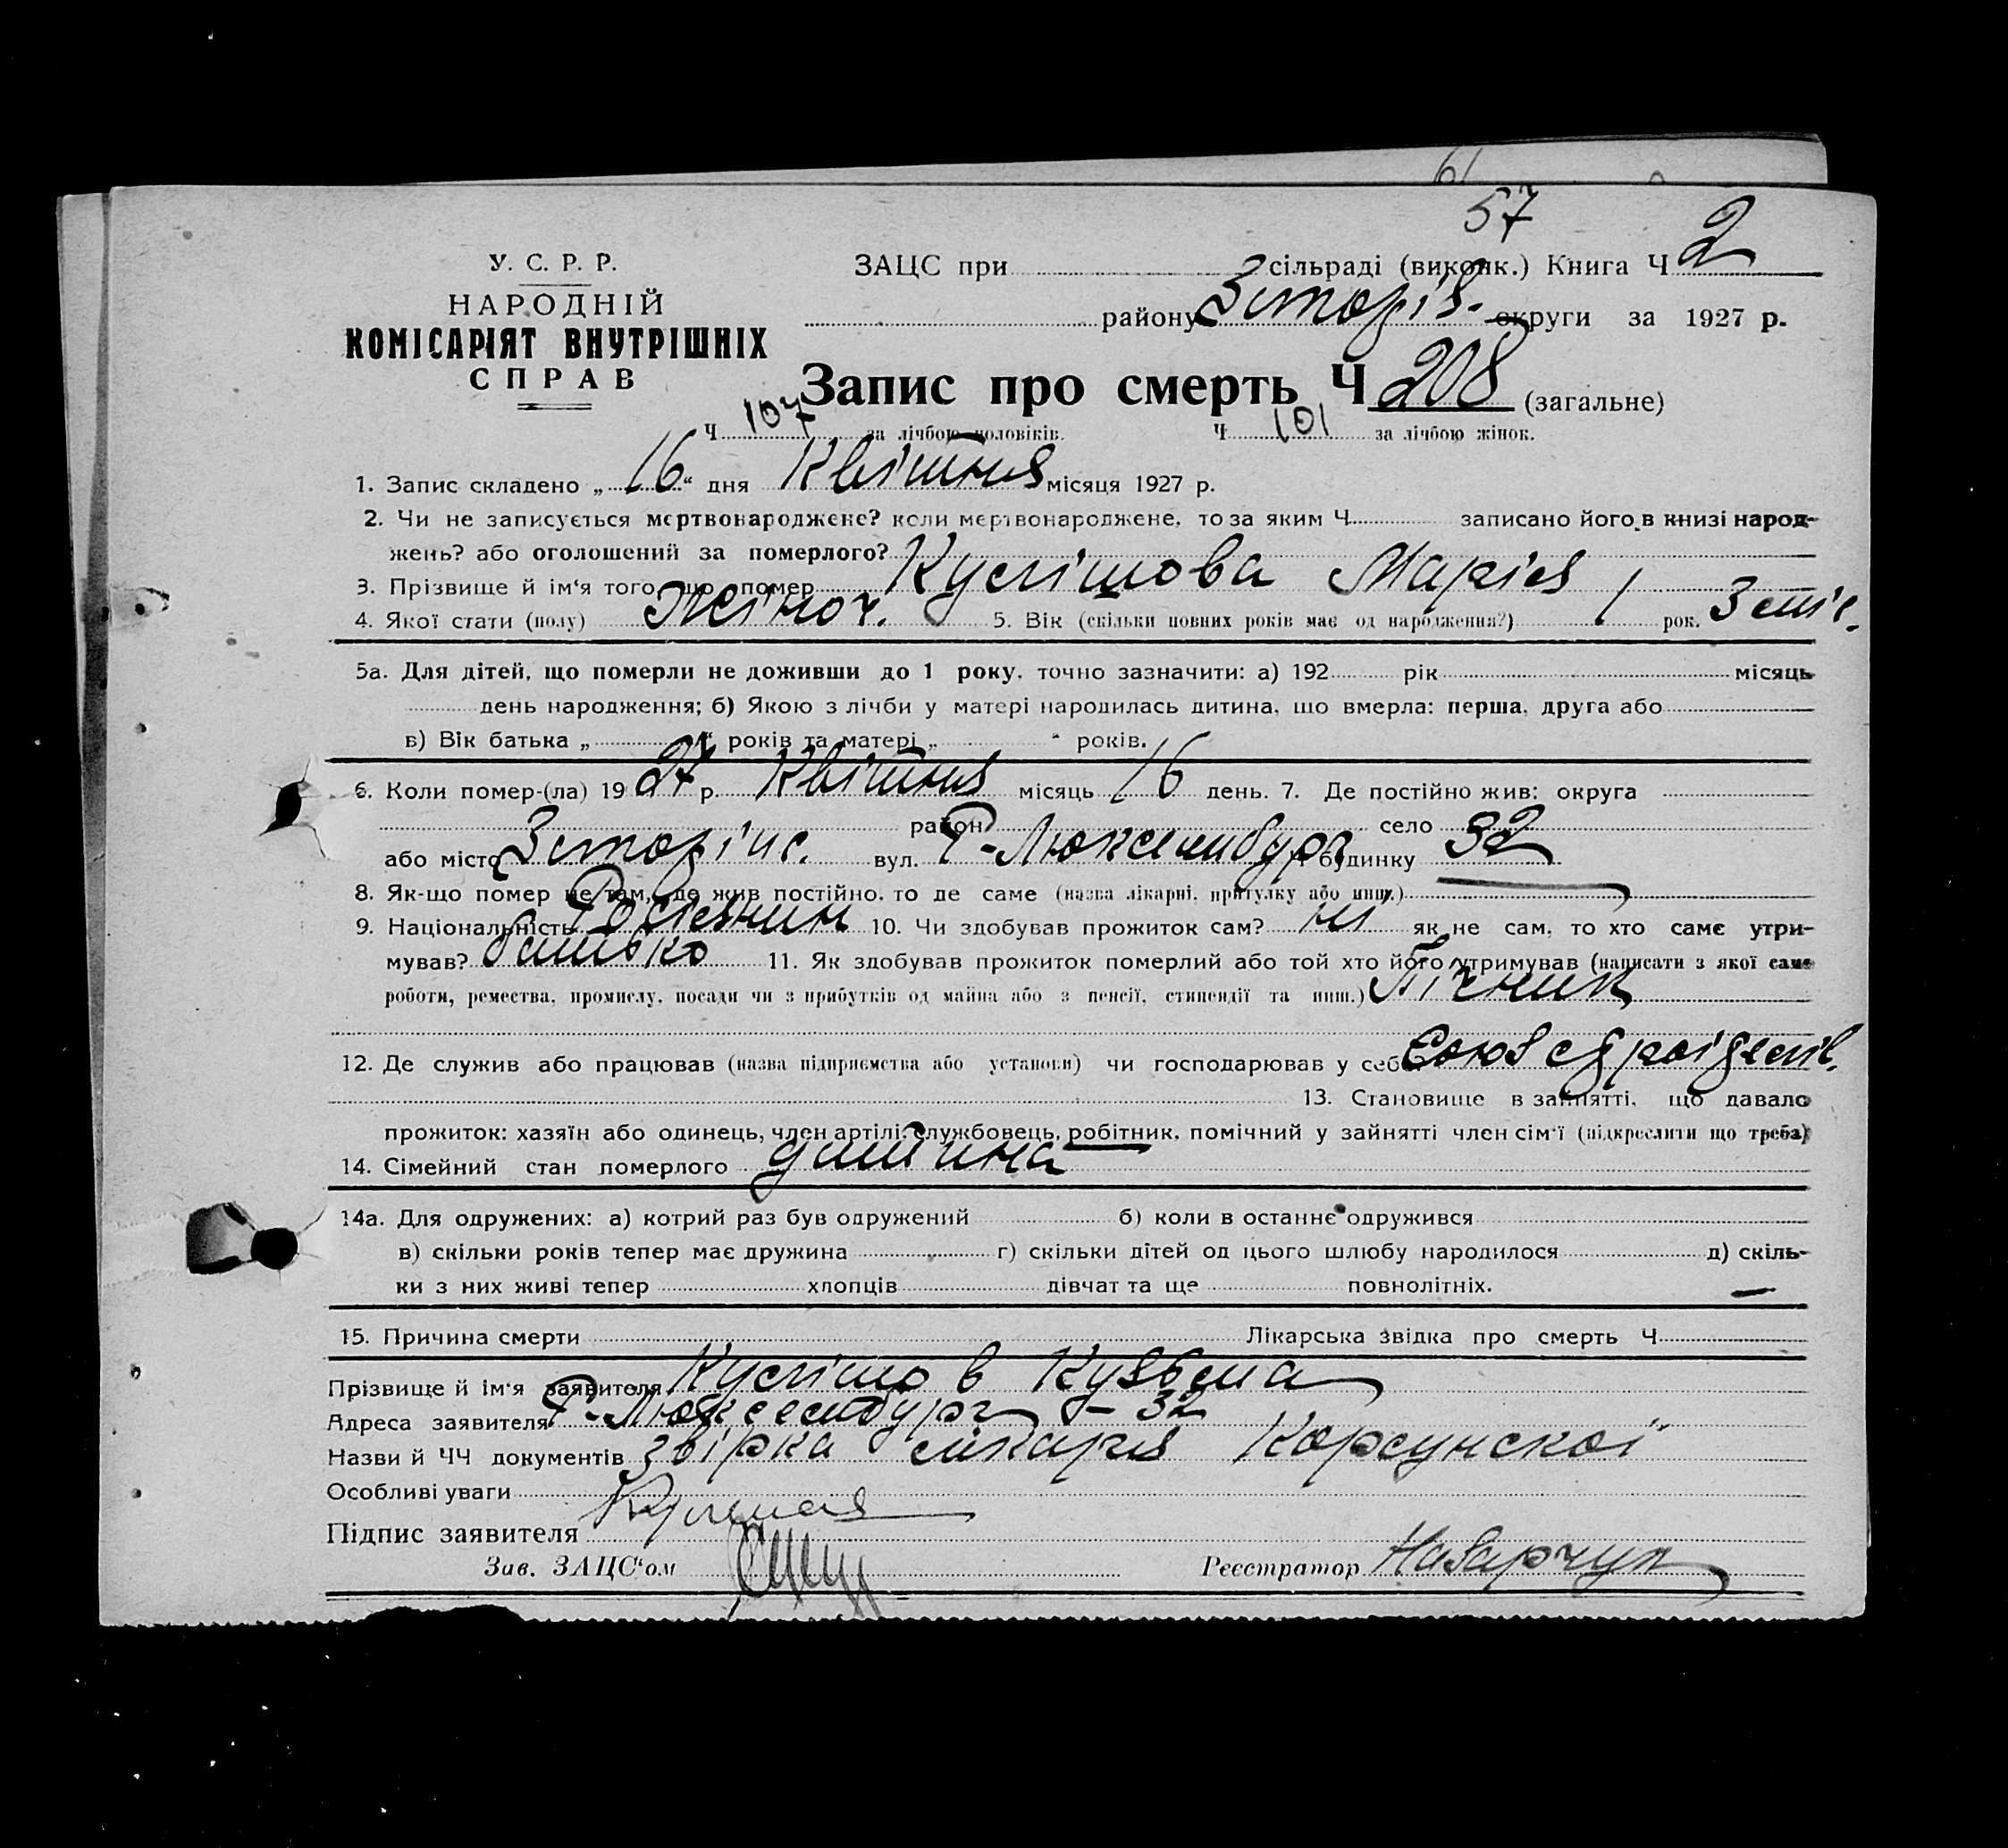 61
57
У. С. Р. Р.
НАРОДНІЙ
КОМІСАРІЯТ ВНУТРІШНІХ
СПРАВ
ЗАЦС при сільраді (виконк.) Книга Ч 2
району округи за 1927 р.
Запис про смерть Ч 208 (загальне)
Ч 107 за лічбою чоловіків. Ч 101 за лічбою жінок.
1. Запис складено „ 16 “ дня Квітня місяця 1927 р.
2. Чи не записується мертвонароджене? коли мертвонароджене, то за яким Ч записано його в книзі народ-
жень? або оголошений за померлого?
3. Прізвище й ім‘я того, що помер Марія
4. Якої стати (полу) Жіноч. 5. Вік (скільки повних років має од народження?) 1 рок. 3 міс.
5а. Для дітей, що померли не доживши до 1 року, точно зазначити: а) 192 рік місяць
день народження; б) Якою з лічби у матері народилась дитина, що вмерла: перша, друга або
в) Вік батька „ “ років та матері „ “ років.
6. Коли помер-(ла) 19 27 р. Квітня місяць 16 день. 7. Де постійно жив: округа
район село
або місто вул. Р-Люксембург будинку 32
8. Як-що помер не там, де жив постійно, то де саме (назва лікарні, притулку або инш.)
9. Національність Росіянин 10. Чи здобував прожиток сам? ні як не сам, то хто саме утри-
мував? батько 11. Як здобував прожиток померлий або той хто його утримував (написати з якої саме
роботи, ремества, промислу, посади чи з прибутків од майна або з пенсії, стипендії та инш.) Пічник
12. Де служив або працював (назва підприємства або установи) чи господарював у себе Союз
13. Становище в занятті, що давало
прожиток: хазяїн або одинець, член артілі, службовець, робітник, помічний у зайнятті член сім‘ї (підкреслити що треба)
14. Сімейний стан померлого дитина
14а. Для одружених: а) котрий раз був одружений б) коли в останнє одружився
в) скільки років тепер має дружина г) скільки дітей од цього шлюбу народилося д) скіль-
ки з них живі тепер хлопців дівчат та ще повнолітніх. —
15. Причина смерти Лікарська звідка про смерть Ч
Прізвище й ім‘я заявителя Кузьма
Адреса заявителя Р-Люксембург – 32
Назви й ЧЧ документів лікаря Корсунскої
Особливі уваги
Підпис заявителя
Зав. ЗАЦС‘ом
Реєстратор Назарчук